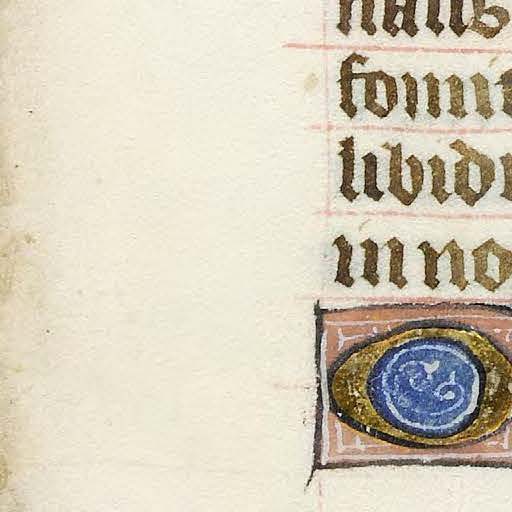 nalis
fornit
libidi
in no